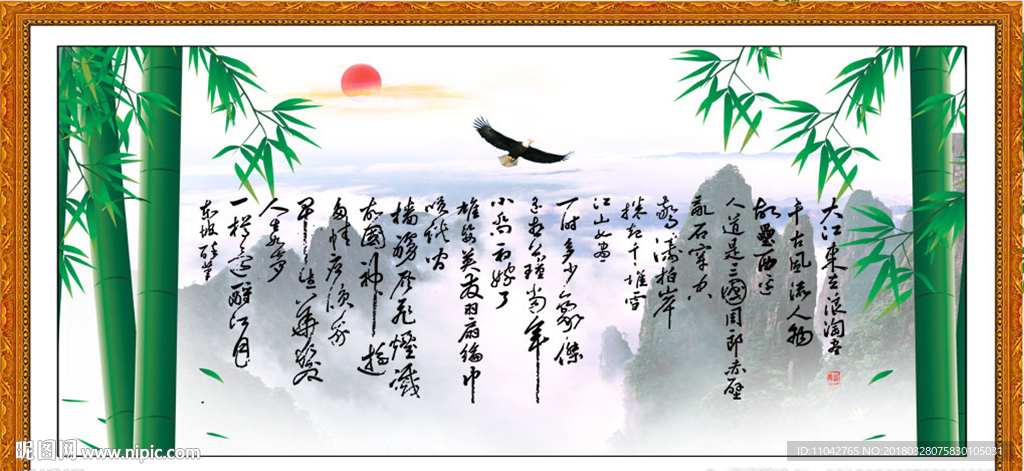 大江東去浪淘盡
千古風流人物
故壘西邊
人道是三國周郎赤壁
亂石穿空
驚濤拍岸
捲起千堆雪
江山如畫
一時多少豪傑
遙想公瑾當年
小喬初嫁了
雄姿英發羽扇綸巾
談笑間
檣櫓灰飛煙滅
故國神遊
多情應笑我
早生華髮
人生如夢
一樽還酹江月
東坡醉筆
昵图网 www.nipic.com
ID:11042765 NO:20180328075830105031